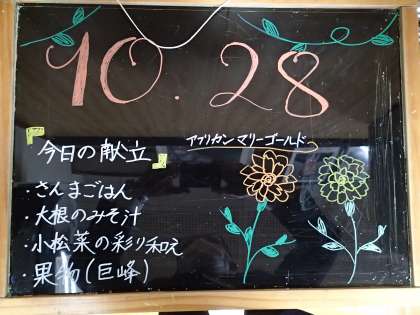 10.28
「今日の献立」
アフリカンマリーゴールド
・さんまごはん
・大根のみそ汁
・小松菜の彩り和え
・果物(巨峰)